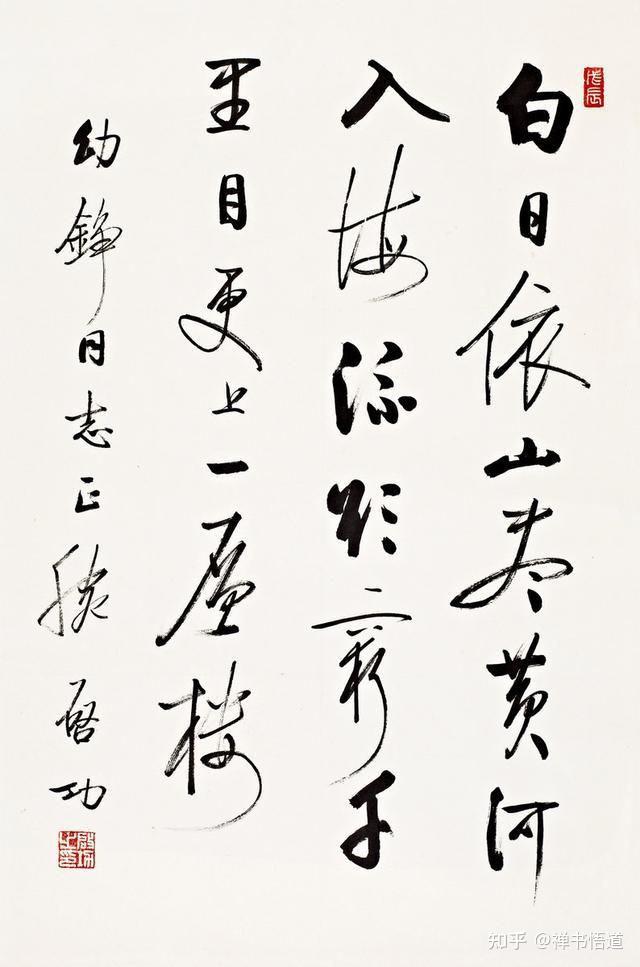 戊辰
白日依山尽黄河
入海流欲穷千
里目更上一层楼
幼铮同志正腕 启功
启功之印
知乎 @禅书悟道